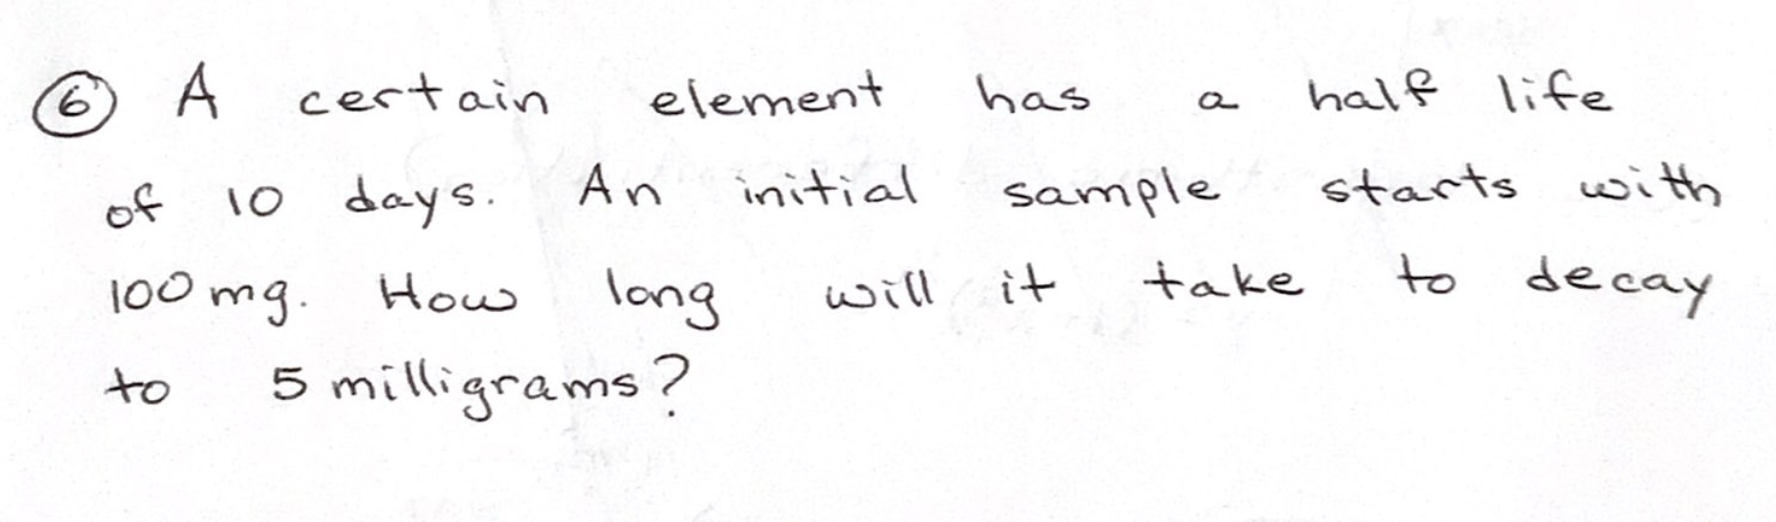 ⑥ A certain element has a half life
of 10 days. An initial sample starts with
100 mg. How long will it take to decay
to 5 milligrams?